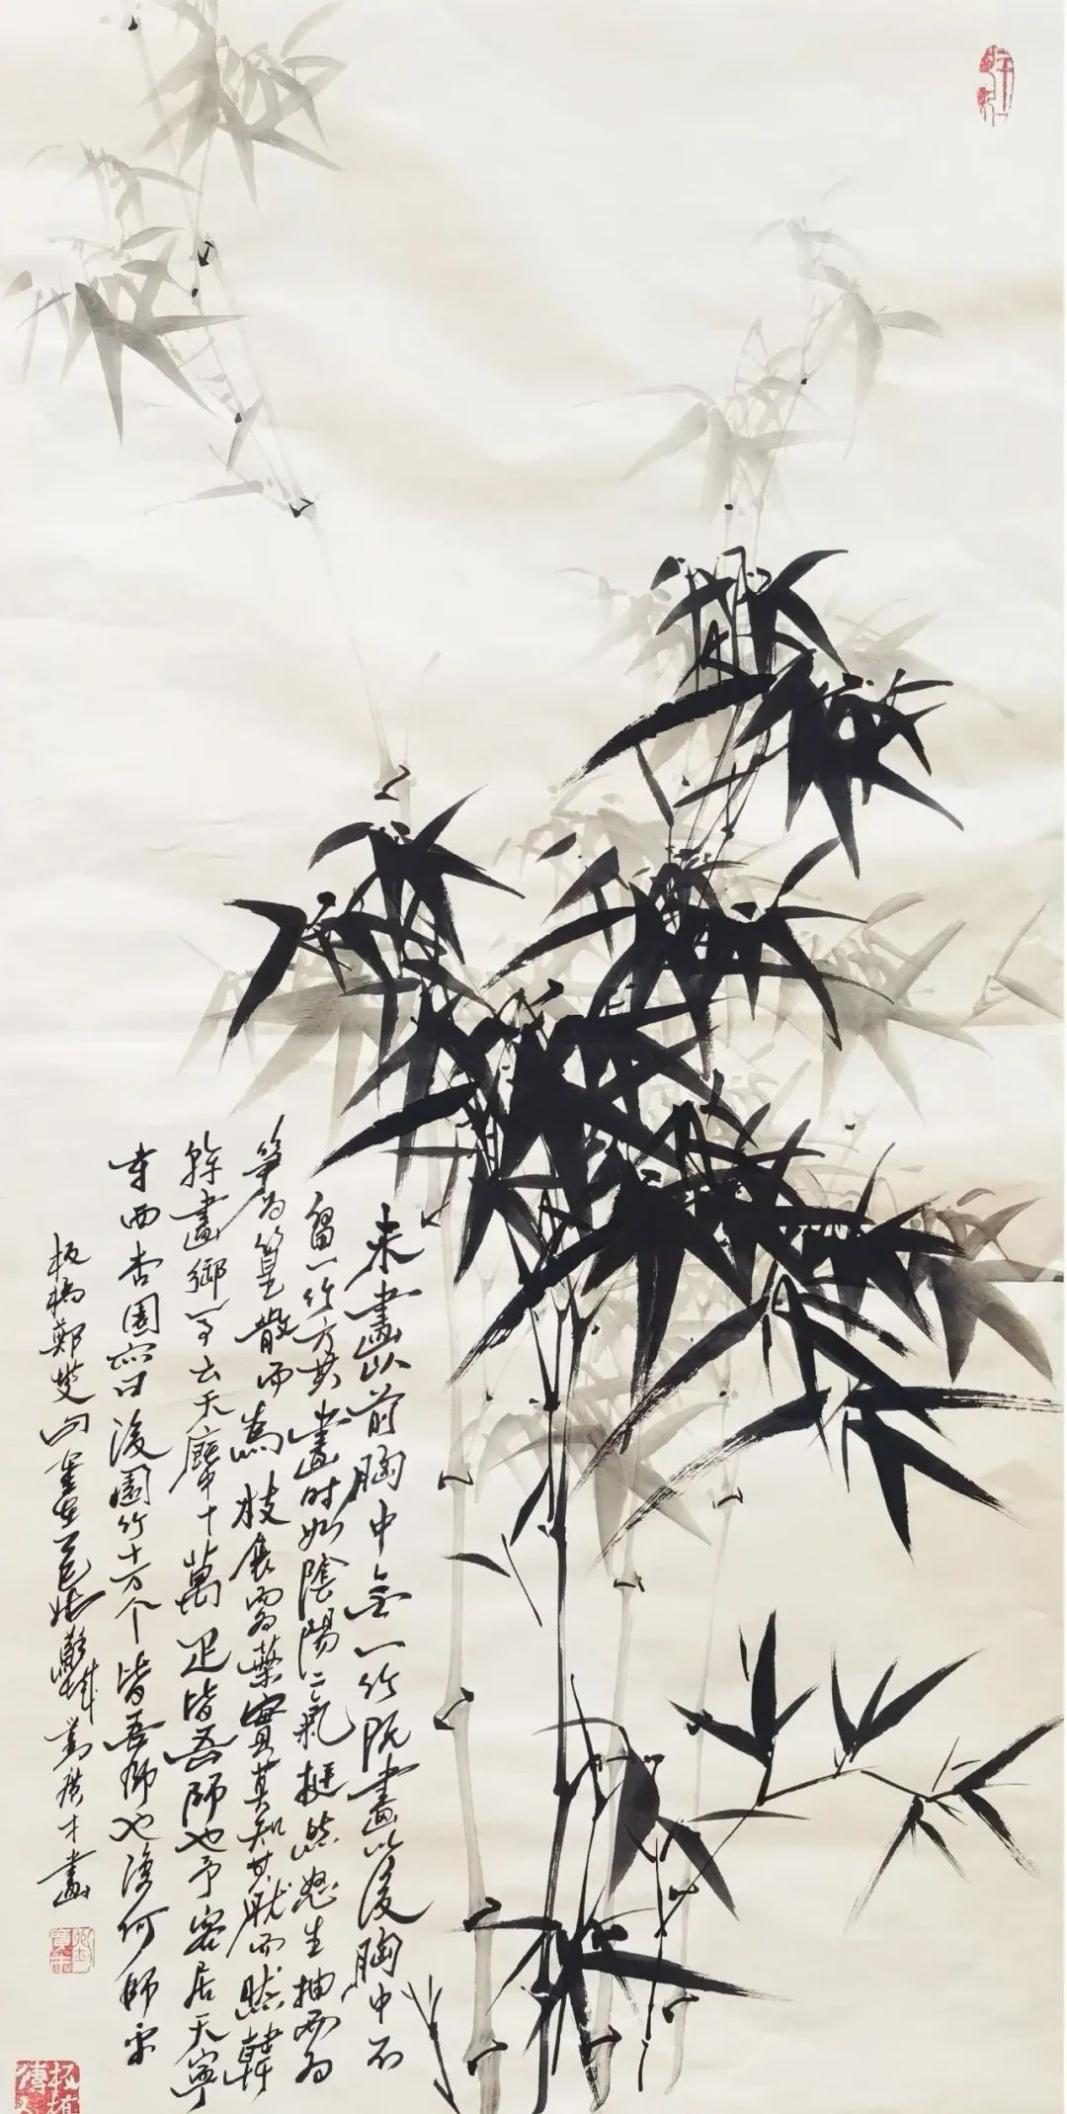 未畫以前胸中無一竹既畫以後胸中不
留一竹方其畫時如陰陽二氣挺然怒生抽而為
筍為篁散而為枝展而為葉實莫知其然而然韓
幹畫御馬云天廄十萬疋皆吾師也予客居天寧
寺西杏園亦曰後園竹十万个皆吾師也復何師乎
板橋鄭燮
才畫